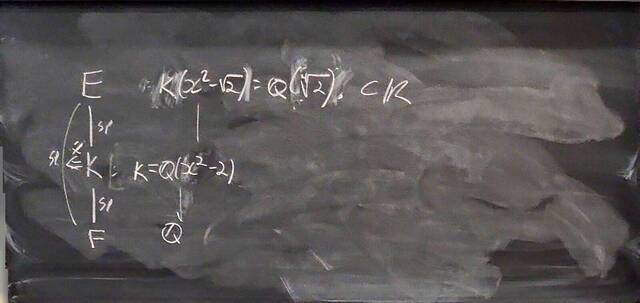 E = K(x²-√2) = Q(∜2) ⊂ R
sp
sp ⇍ K = K = Q(x²-2)
sp
F Q